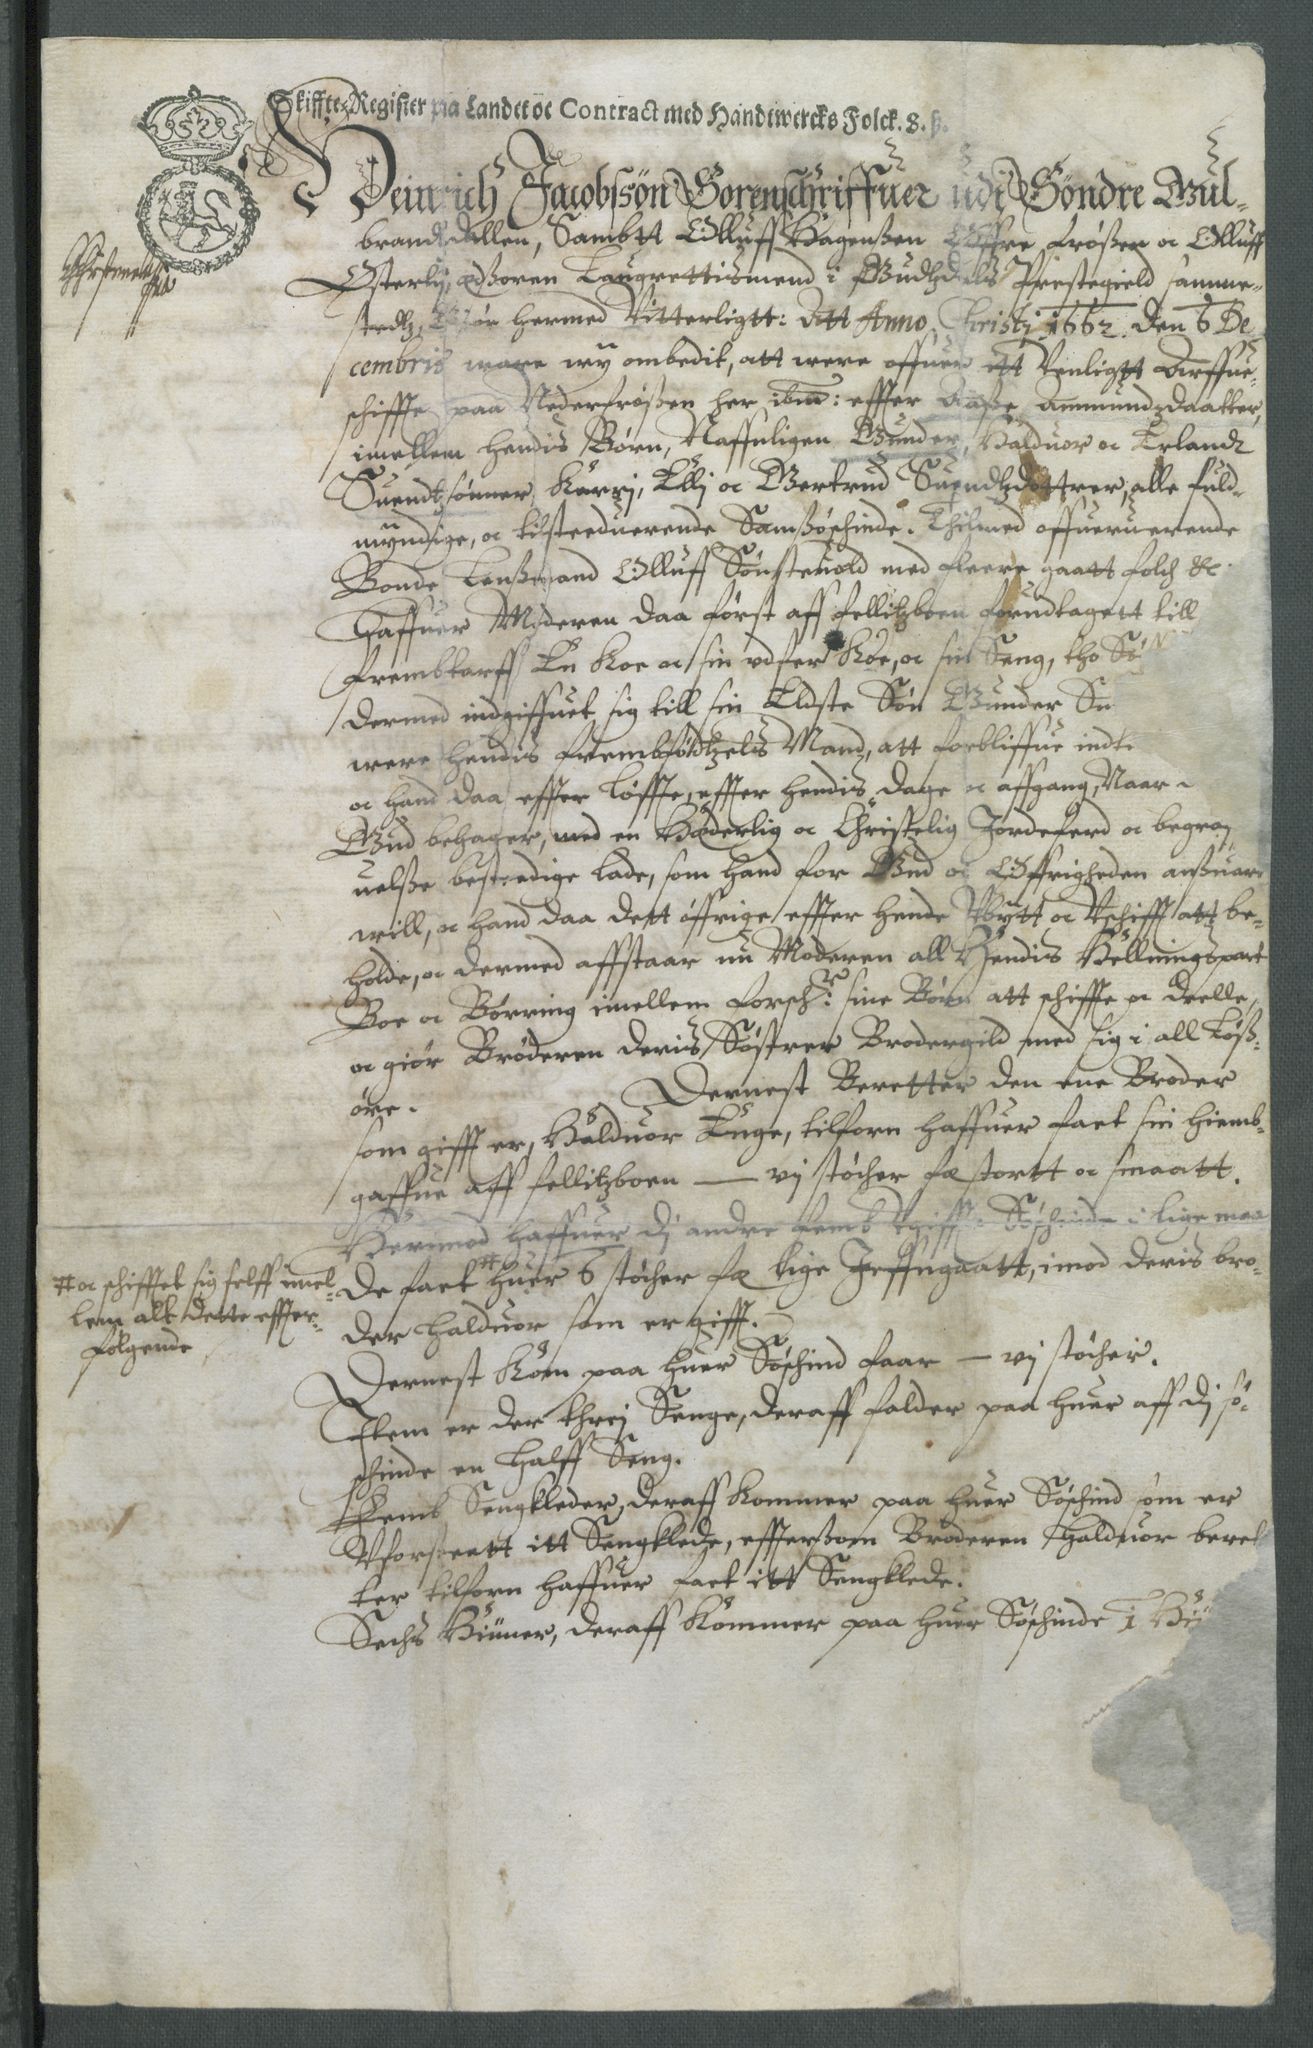 Skiffte-Register paa Landet oc Contract med Handtwercks Folck. 8. ß.
Heinrich Jacobssön Sorenschriffuer udi Söndre Gul-
brandtzdallen, Sambtt Olluff Hagenßen Öffre Frößen oc Olluff
Österlij, edßoren Laugrettismend i Gudtzdals Prestegield samme-
stedtz, Giör hermed Vitterligtt: Att Anno Christi 1662. den 6 De
cembris ware wij ombedit, att were offuer ett Venligtt Arffue-
schiffte paa Nederfrößen her ibm: effter Aaße Ammundzdaatter,
imellem hendis Börn, Naffnligen Gunder, Halduor oc Erlandt
Suendtzsönner, Karrj, Ellj oc Gertrud Suendtzdöttrer, alle fuld-
myndige, oc tilstedeuerende Samsöschinde. Thilmed offueruerende
Bonde Lenßmand Olluff Sönsteuold med fleere gaatt folch &c.
Haffuer Moderen daa först aff fellitzboen forundtagett till
frembtarff En Koe oc sin vdfer Köe, oc sin Seng, tho Sö
dermed indgiffuet sig till sin Eldste Sön Gunder Su
were hendis frembfödtzels Mand, att forbliffue indt
oc hand daa effter löffte, effter hendis dage oc affgang, Naar
Gud behager, med en Hæderlig oc Christelig Jordeferd oc begraf
uelße bestedige lade, som hand for Gud oc Öffrigheden anßuare
will, oc hand daa dett öffrige effter hende Vbytt oc Vschifft att be-
holde, oc dermed affstaar nu Moderen all Hendis Hellningspart
Boe oc Börring imellem forschr: sine Börn att schiffte oc deelle,
oc giör Bröderen deris Söstrer Brodergild med sig i all löß-
öre. Dernest Beretter den ene Broder
som gifft er, Halduor Enge, tilforn haffuer faet sin hiemb-
gaffue aff fellitzboen — vij stöcher fæ stortt oc smaatt.
Herimod haffuer dj andre femb Vgiffte Söschinde i lige maa
de faet # huer 6 stöcher fæ lige Jeffngaatt, imod deris bro-
der Halduor som er gifft.
# oc schifftet sig selff imel-
lem alt dette effter-
fölgende
Dernest Korn paa huer Söschind faar — vj stöcher.
Item er der threj Senge, deraff falder paa huer aff dj sö-
schinde en halff Seng.
Femb Sengkleder, deraff kommer paa huer Söschind som er
Vforseett itt Sengklede, efftersom Broderen Halduor beret
ter tilforn haffuer faet itt Sengklede.
Sechs Hiüner, deraff kommer paa huer Söschinde 1 Hiü